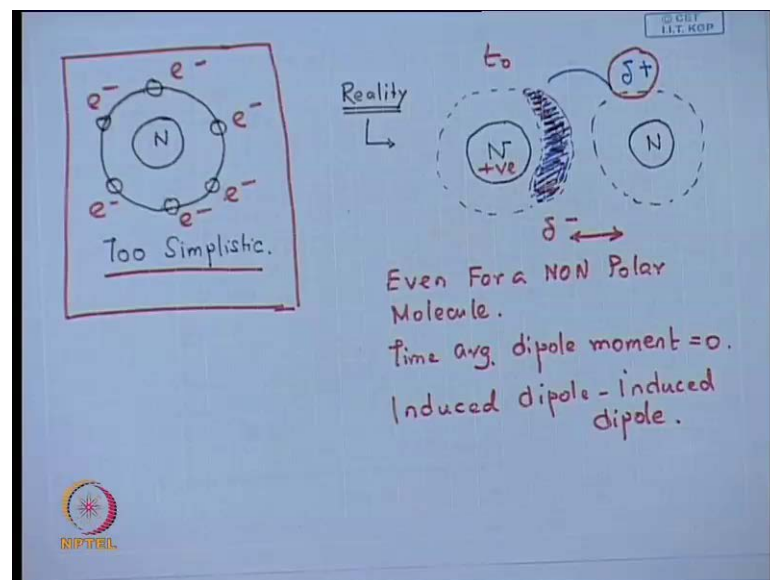 © CET
I.I.T. KGP
e⁻
e⁻
e⁻
N
e⁻
e⁻
e⁻
Too Simplistic.
Reality
t₀
δ+
N
+ve
N
δ⁻
Even For a NON Polar
Molecule.
Time avg. dipole moment = 0.
Induced dipole - induced
dipole.
NPTEL